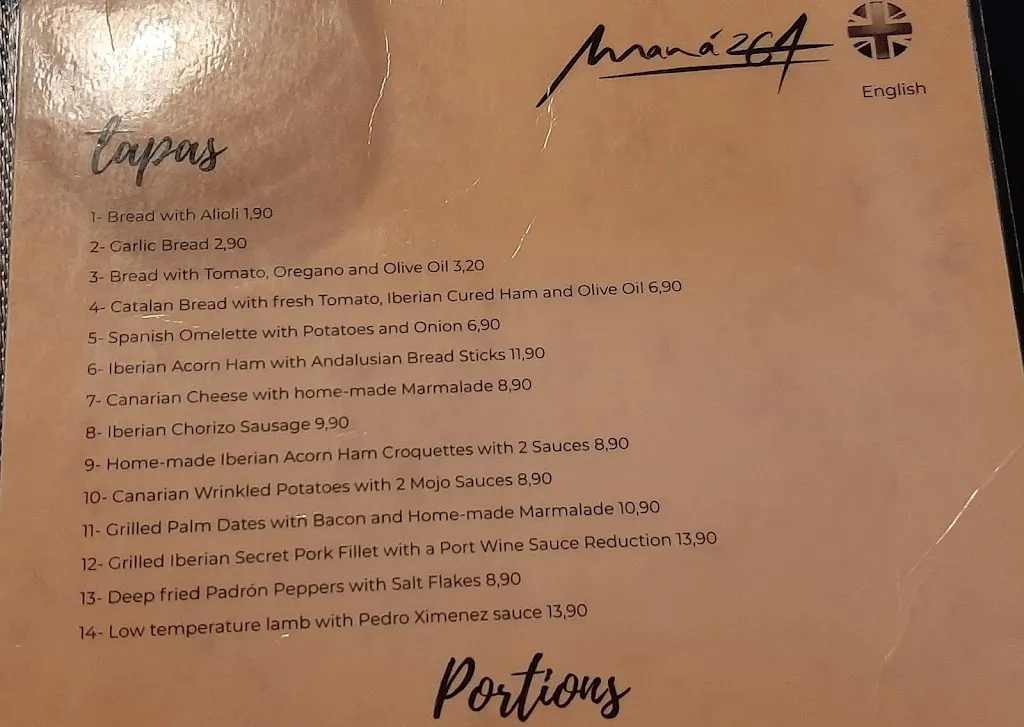 Maná264
English
tapas
1- Bread with Alioli 1,90
2- Garlic Bread 2,90
3- Bread with Tomato, Oregano and Olive Oil 3,20
4- Catalan Bread with fresh Tomato, Iberian Cured Ham and Olive Oil 6,90
5- Spanish Omelette with Potatoes and Onion 6,90
6- Iberian Acorn Ham with Andalusian Bread Sticks 11,90
7- Canarian Cheese with home-made Marmalade 8,90
8- Iberian Chorizo Sausage 9,90
9- Home-made Iberian Acorn Ham Croquettes with 2 Sauces 8,90
10- Canarian Wrinkled Potatoes with 2 Mojo Sauces 8,90
11- Grilled Palm Dates with Bacon and Home-made Marmalade 10,90
12- Grilled Iberian Secret Pork Fillet with a Port Wine Sauce Reduction 13,90
13- Deep fried Padrón Peppers with Salt Flakes 8,90
14- Low temperature lamb with Pedro Ximenez sauce 13,90
Portions